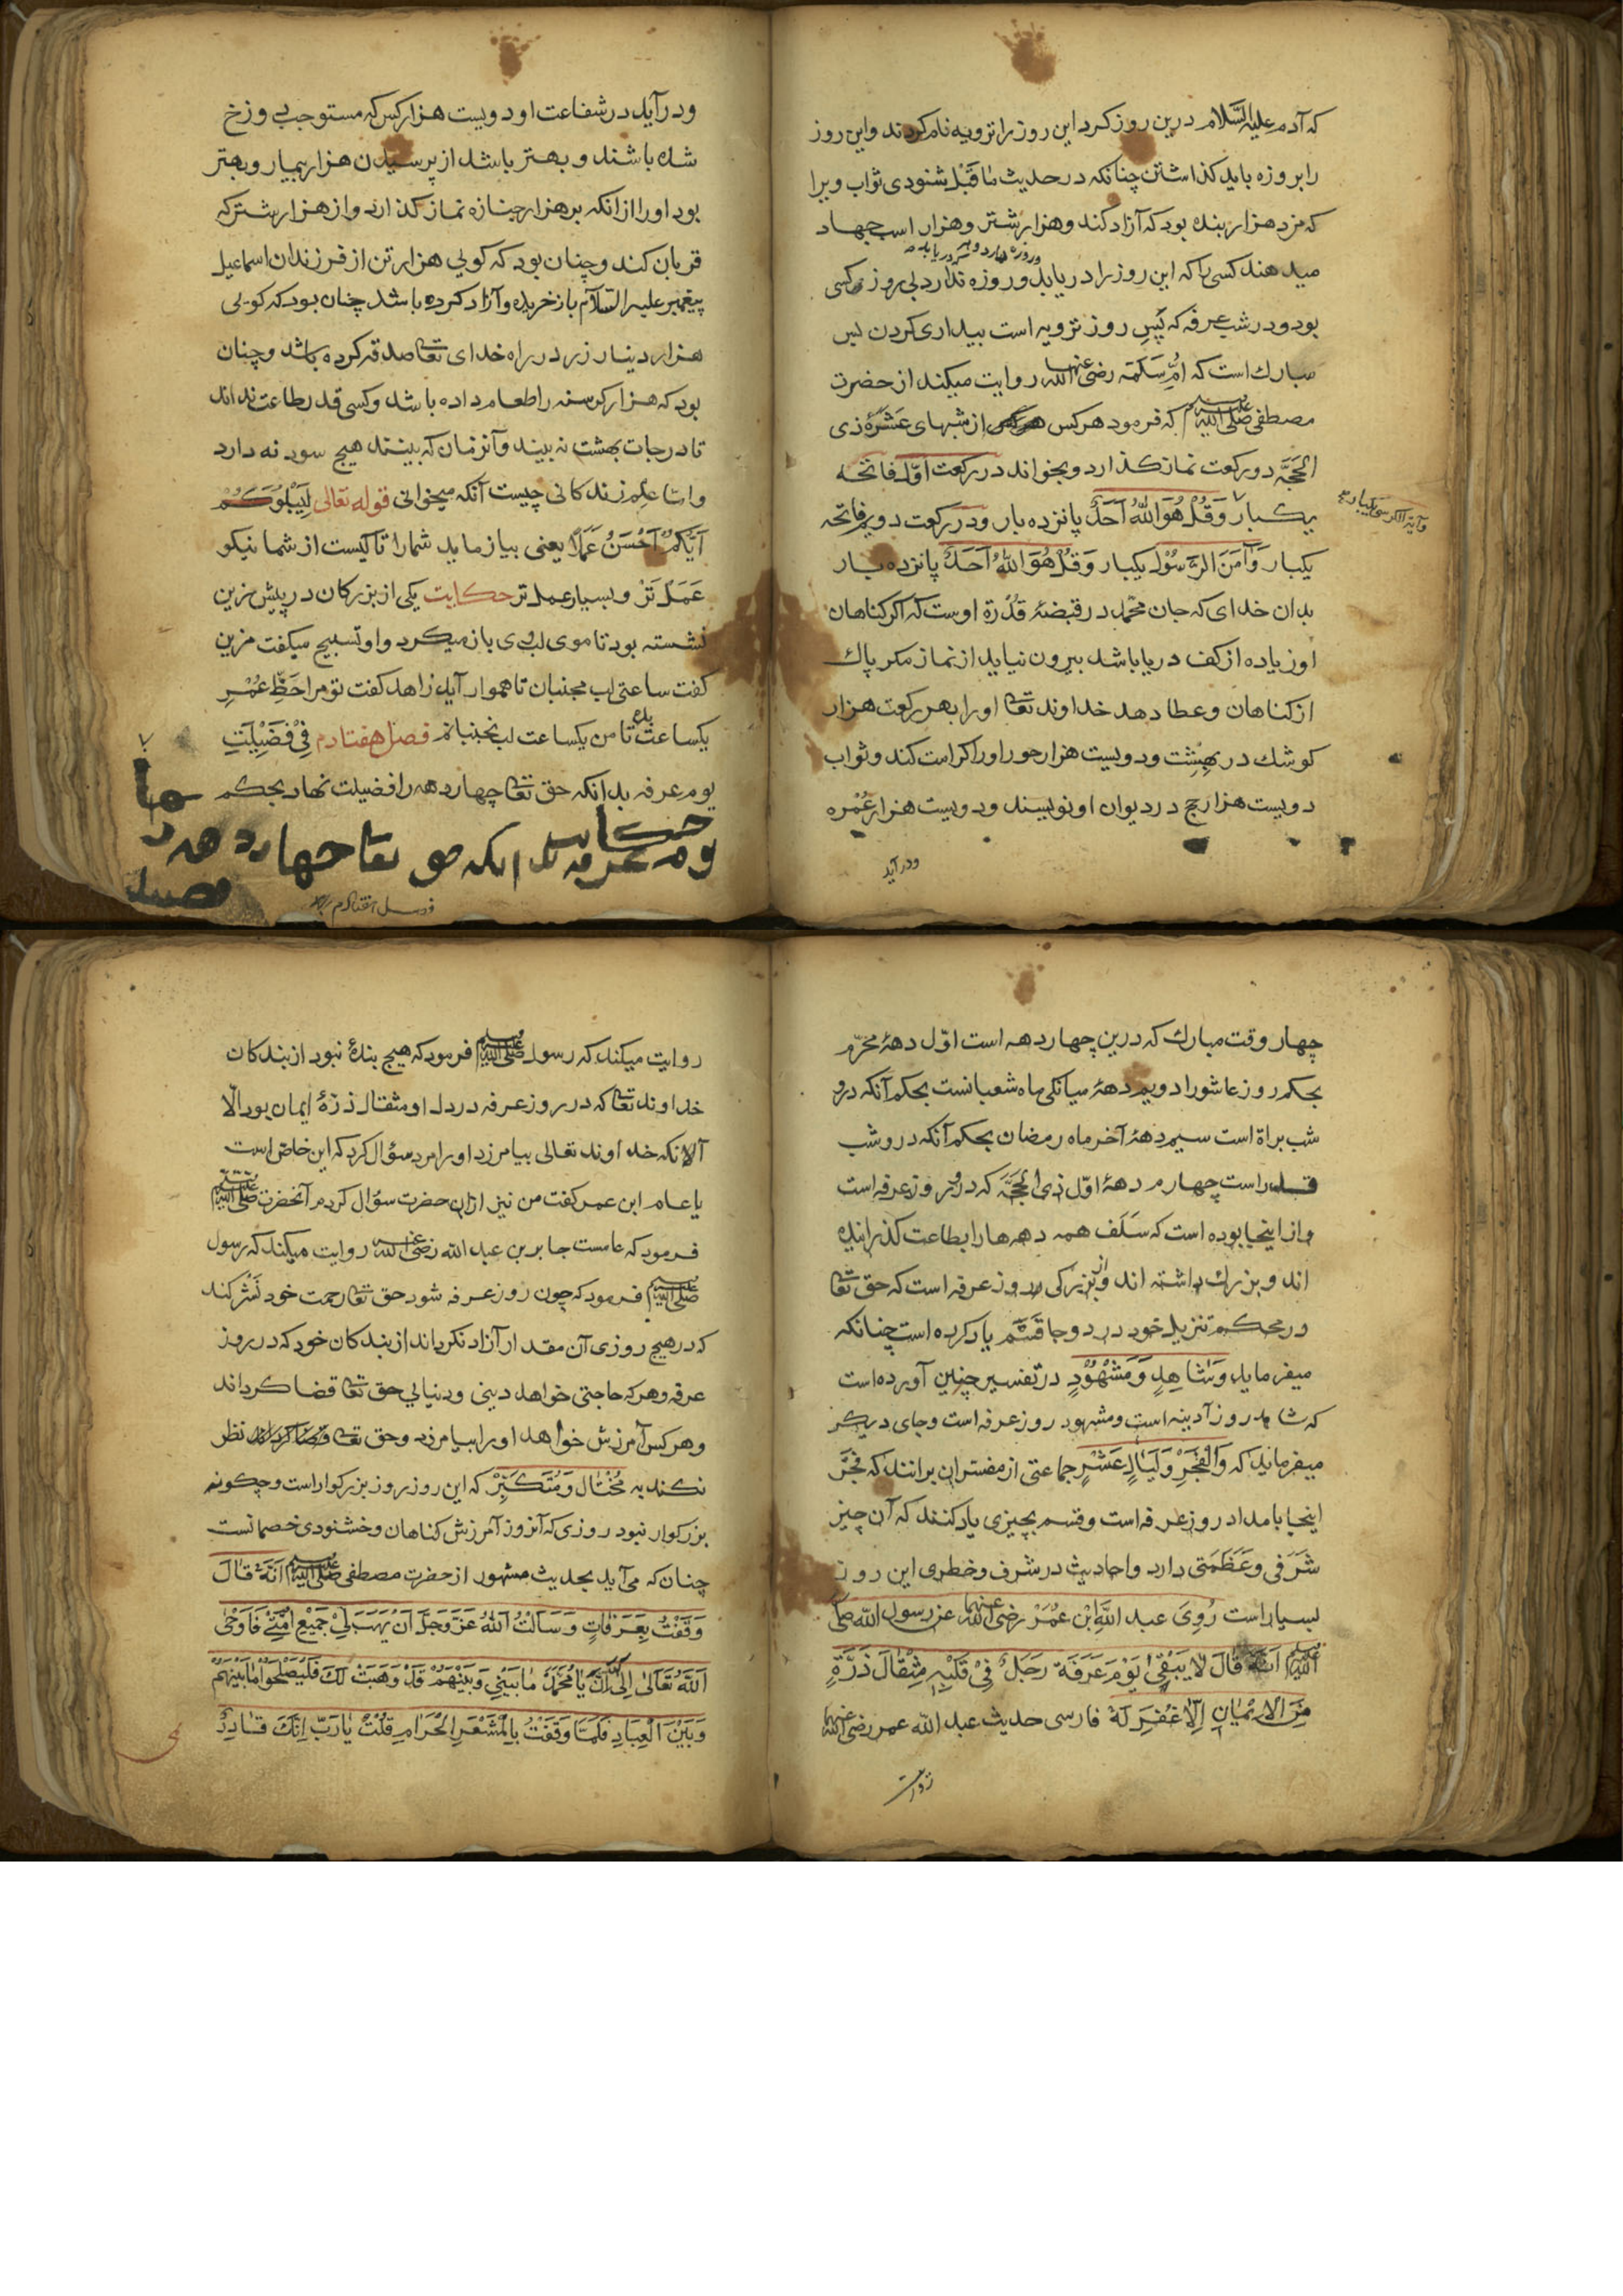 که آدم علیه السّلام درین روز کرد این روز را ترویه نام کردند و این روز
را بروزه باید کذاشتن چنانکه در حدیث ماقبل شنودی ثواب ویرا
که مزد هزار بنده بود که آزاد کند و هزار شتر و هزار اسب جهاد
میدهند کسی را که این روز را دریابد و روزه ندارد بی روز کسی
بود و در شب عرفه که پس روز ترویه است بیداری کردن بس
مبارك است که امّ سلمه رضی الله عنها روایت میکند از حضرت
مصطفی صلی الله علیه وسلم که فرمود هر کس از شبهای عَشَرهٔ ذی
الحجَّه دو رکعت نماز کذارد و بخواند در رکعت اوّل فاتحه
یکبار وَقُلْ هُوَ اللهُ اَحَدٌ پانزده بار و در رکعت دویم فاتحه
وآیة الکرسی یکبار
یکبار وَآمَنَ الرَّسُوْل یکبار وَقُلْ هُوَ اللهُ اَحَدٌ پانزده بار
بدان خدای که جان محمّد در قبضهٔ قُدْرَة اوست که اکر کناهان
او زیاده از کف دریا باشد بیرون نیاید از نماز مکر پاك
از کناهان و عطا دهد خداوند تعالی او را بهر رکعت هزار
کوشك در بهِشِت و دویست هزار حور او را کرامت کند و ثواب
دویست هزار حج در دیوان او نویسند و دویست هزار عُمْره
ودر آید
ودر آید در شفاعت او دویست هزار کس که مستوجب دوزخ
شده باشند و بهتر باشد از پرسیدن هزار بیمار و بهتر
بود او را از انکه بر هزار جنازه نماز کذارد و از هزار شتر که
قربان کند و چنان بود که کویی هزار تن از فرزندان اسماعیل
پیغمبر علیه السّلام باز خریده و آزاد کرده باشد چنان بود که کویی
هزار دینار زر در راه خدای تعالی صدقه کرده باشد و چنان
بود که هزار کرسنه را طعام داده باشد و کسی قدر طاعت نداند
تا درجات بهشت نه بیند و آنزمان که بینند هیچ سود نه دارد
وامّا علم زندکانی چیست آنکه میخوانی قوله تعالی لِیَبْلُوَکُمْ
اَیُّکُمْ اَحْسَنُ عَمَلًا یعنی بیازماید شما را تا کیست از شما نیکو
عَمَلْ تَرْ و بسیار عمل تر حکایت یکی از بزرکان در پیش مزین
نشسته بود تا موی لب وی باز میکرد و او تسبیح میکفت مزین
کفت ساعتی لب مجنبان تا هموار آید زاهد کفت تو مرا حَظِّ عُمْرِ
یکساعت بده تا من یکساعت لب نجنبانم فصل هفتادم فِیْ فَضِیْلَتِ
یوم عرفه بدانکه حق تعالی چهار دهه را فضیلت نهاد بحکم
حکایت
یوم عرفه بدانکه حق تعالی چهار دهه ر
چهار وقت مبارك که درین چهار دهه است اوّل دههٔ محرّم
بحکم روز عاشورا دویم دههٔ میانکی ماه شعبانست بحکم آنکه درو
شب براة است سیم دههٔ آخر ماه رمضان بحکم آنکه درو شب
قدر است چهارم دههٔ اوّل ذی الحجَّه که درو روز عرفه است
و از اینجا بوده است که سَلَف همه دهه ها را بطاعت کذرانیده
اند و بزرك داشته اند و از بزرکی روز عرفه است که حق تعالی
در محکم تنزیل خود در دو جا قَسَم یاد کرده است چنانکه
میفرماید وَشَاهِدٍ وَمَشْهُوْدٍ در تفسیر چنین آورده است
که شاهد روز آدینه است و مشهود روز عرفه است و جای دیکر
میفرماید که وَالْفَجْرِ وَلَیَالٍ عَشْرٍ جماعتی از مفسّران برانند که فجْر
اینجا بامداد روز عرفه است و قسم بچیزی یاد کنند که آن چیز
شَرَفی و عَظَمَتی دارد و احادیث در شرف و خطری این روز
بسیار است رُوِیَ عبد اللهِ اِبْنِ عُمَرْ رضی الله عنهما عن رسول الله صلی
الله علیه وسلم اَنّهُ قَالَ لَا یَبْقٰی یَوْمَ عَرَفَة رَجُلٌ فِیْ قَلْبِهِ مِثْقَالَ ذَرَّةٍ
مِنَ الْاِیْمَانِ اِلَّا غُفِرَ لَهُ فارسی حدیث عبد الله عمر رضی الله عنهما
روایت
روایت میکند که رسول صلی الله علیه وسلم فرمود که هیچ بندهٔ نبود از بندکان
خداوند تعالی که در روز عرفه در دل او مثقال ذرّهٔ ایمان بود الّا
آلانکه خداوند تعالی بیامرزد او را مرد سؤال کرد که این خاصّ است
یا عام ابن عمر کفت من نیز ازان حضرت سؤال کردم آنحضرت صلی الله علیه وسلم
فرمود که عامست جابر بن عبد الله رضی الله عنه روایت میکند که رسول
صلی الله علیه وسلم فرمود که چون روز عرفه شود حق تعالی رحمت خود نَشْر کند
که در هیچ روزی آن مقدار آزاد نکرداند از بندکان خود که در روز
عرفه و هر که حاجتی خواهد دینی و دنیایی حق تعالی قضا کرداند
و هر کس آمرزش خواهد او را بیامرزد و حق تعالی نظر
نکند به مُخْتَال وَمُتَکَبِّرْ که این روز روز بزرکوار است و چکونه
بزرکوار نبود روزی که آنروز آمرزش کناهان و خشنودی خصمانست
چنان که می آید بحدیث مشهور از حضرت مصطفی صلی الله علیه وسلم اَنَّهُ قَالَ
وَقَفْتُ بِعَرَفَاتٍ وَسَاَلْتُ اللهُ عَزَّ وَجَلَّ اَنْ یَهَبَ لِیْ جَمِیْعَ اُمَّتِیْ فَاَوْحٰی
اللهُ تَعَالٰی اِلَیَّ یَا مُحَمَّدُ مَا بَیْنِیْ وَبَیْنَهُمْ قَدْ وَهَبْتُ لَكَ فَلْیُصْلِحُوْا مَا بَیْنَهُمْ
وَبَیْنَ الْعِبَادِ فَلَمَّا وَقَفْتُ بِالْمَشْعَرِ الْحَرَامِ قُلْتُ یَا رَبِّ اِنَّكَ قَادِرٌ